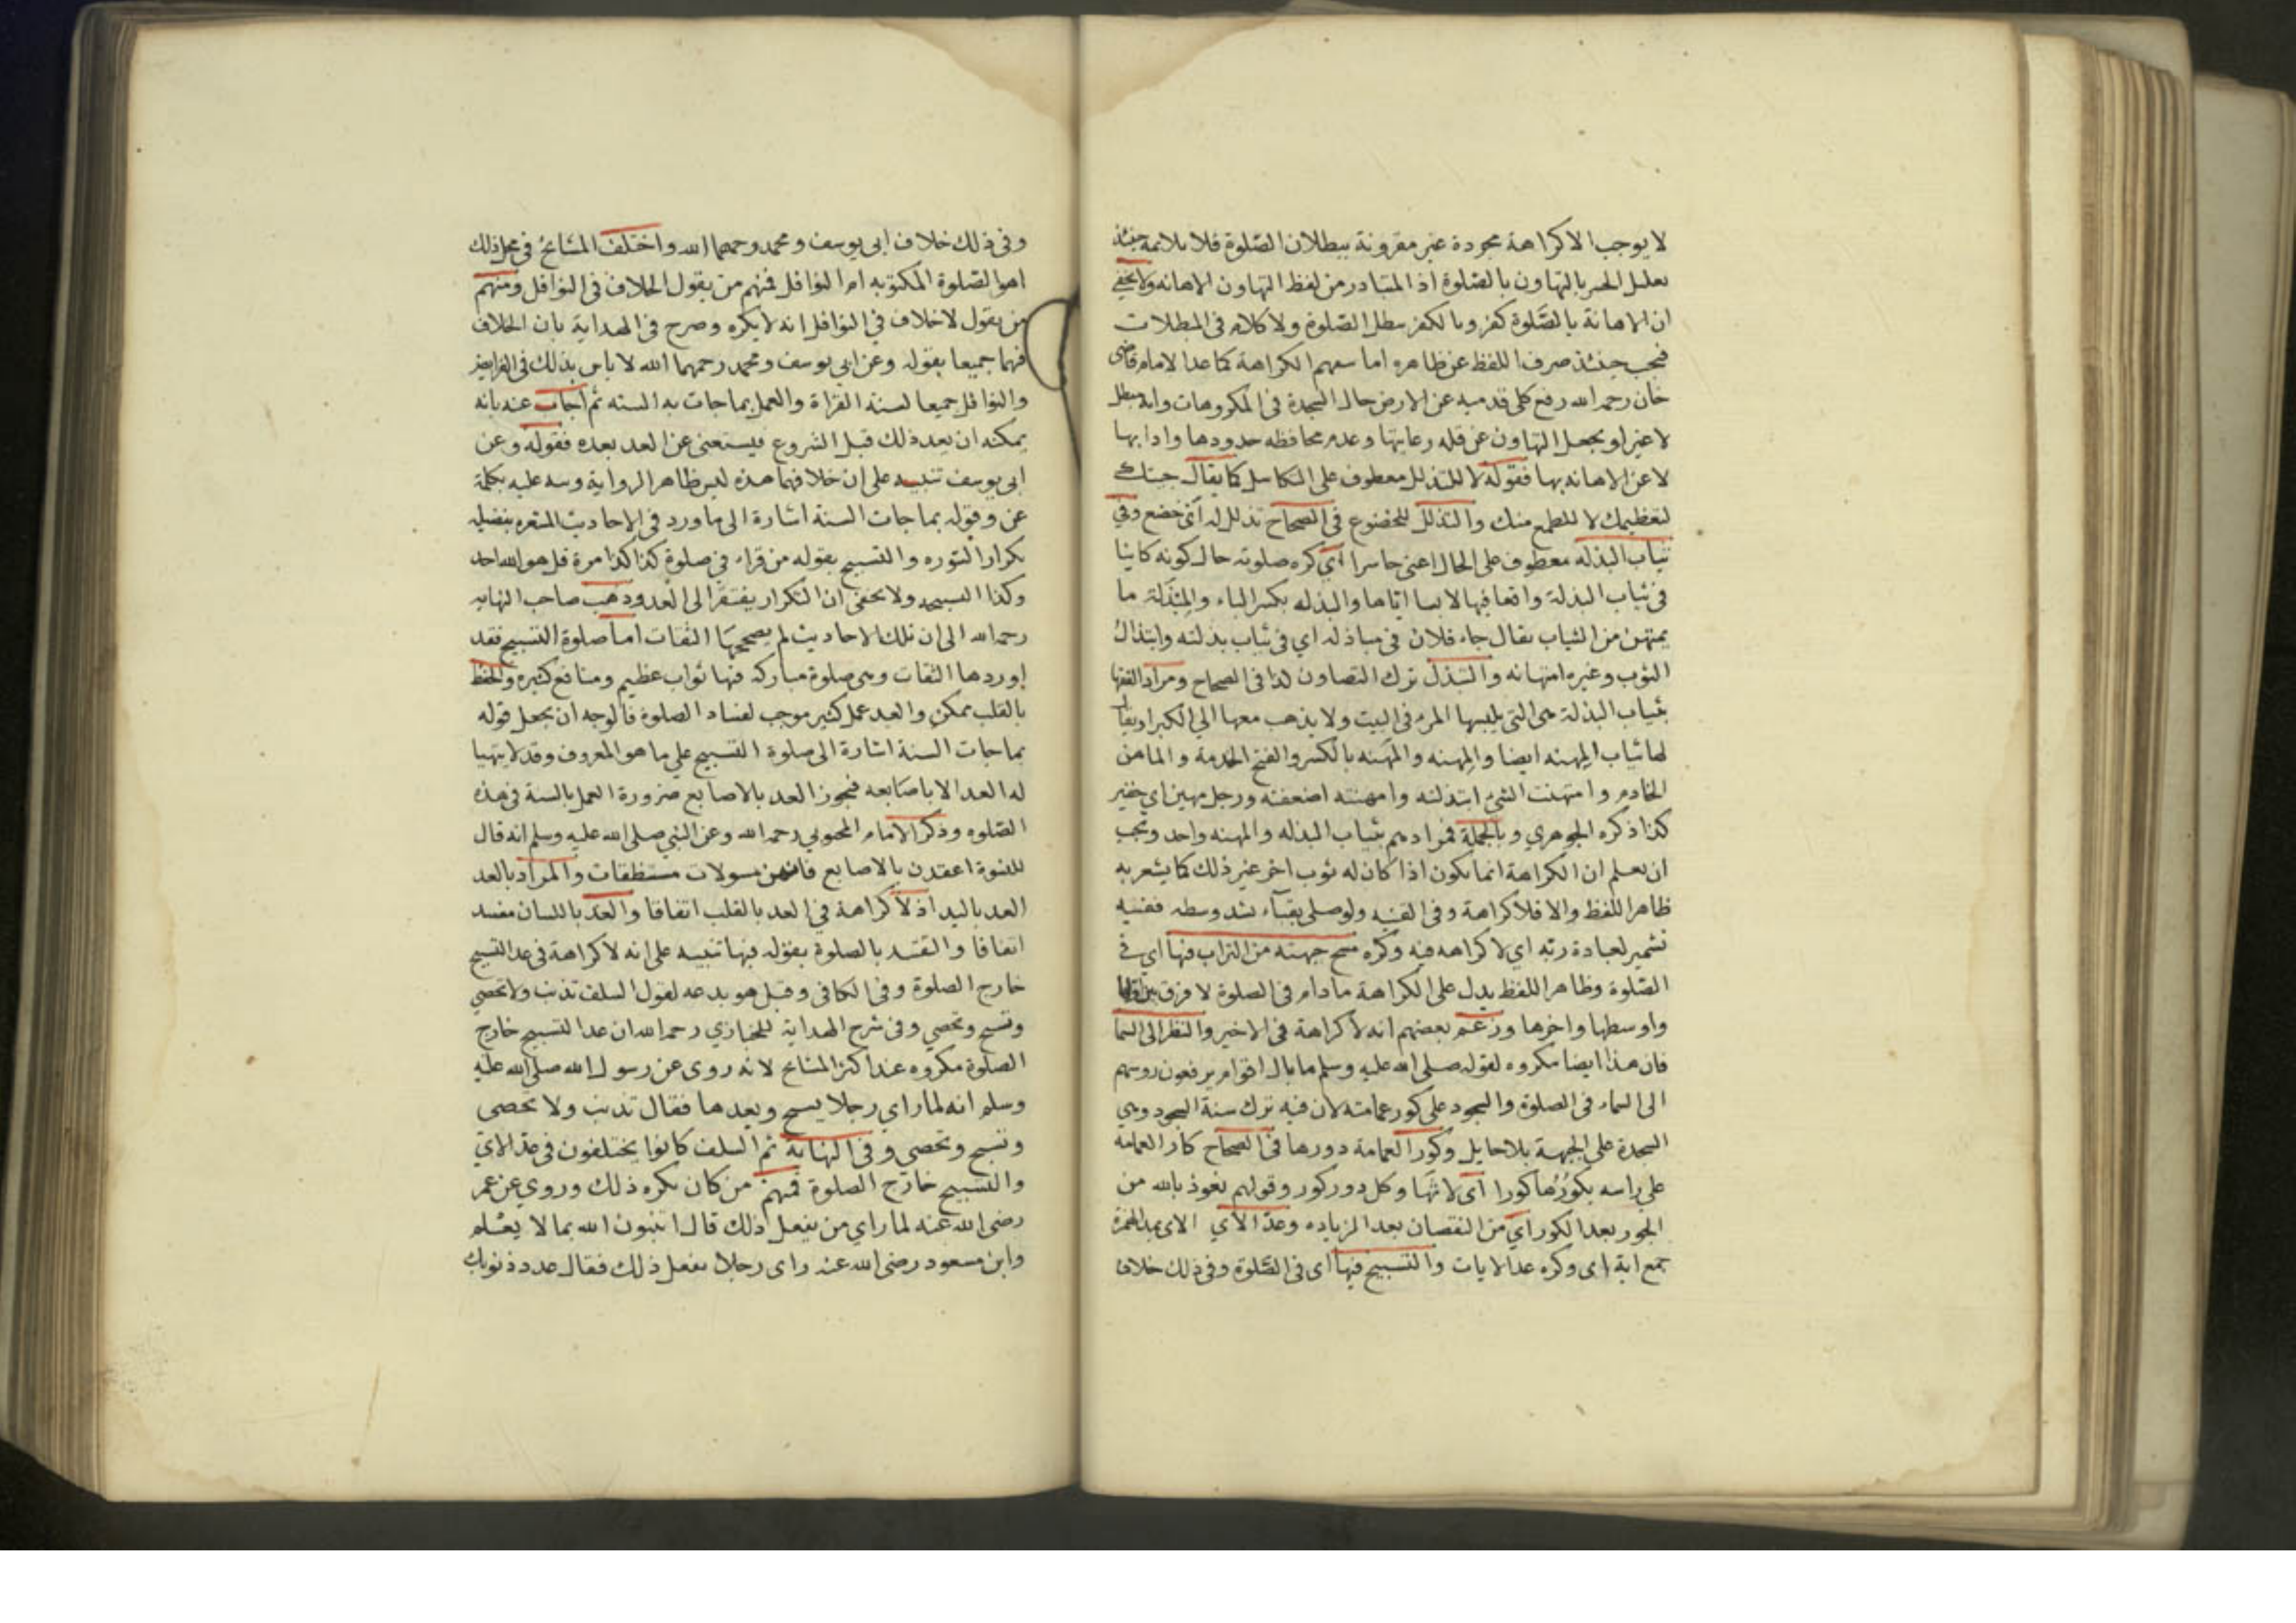 لا يوجب الا كراهة مجردة غير مقرونة ببطلان الصلوة فلا يلايمه حينئذ
تعليل الحسر بالتهاون بالصلوة اذ المتبادر من لفظ التهاون الاهانه ولا يخفي
ان الاهانة بالصلوة كفر وبالكفر يبطل الصلوة ولا كلام فى المبطلات
فيجب حينئذ صرف اللفظ عن ظاهره اما الكراهة كما عدا الامام قاضى
خان رحمه الله رفع كلى قدميه عن الارض حال السجدة فى المكروهات وانه مبطل
لا غير او يجعل التهاون عن قله رعايتها وعدم محافظه حدودها وادابها
لا عن الاهانه بها فقوله لا للتذلل معطوف على التكاسل كما يقال جيتك
لتعظيمك لا للطمع منك والتذلل للخضوع فى الصحاح تذلل له اى خضع وفي
ثياب البذله معطوف على الحال اعنى حاسرا اى كره صلوته حال كونه كاينا
فى ثياب البذلة واقعا فيها لابسا اياها والبذله بكسر الباء والمبذلة ما
يمتهن من الثياب يقال جاء فلان فى مباذله اي فى ثياب بذلته وابتذال
الثوب وغيره امتهانه والتبذل ترك التصاون كذا فى الصحاح ومراد الفقها
بثياب البذلة هى التى يلبسها المرء فى البيت ولا يذهب معها الي الكبراء ويقال
لها ثياب المهنه ايضا والمهنه والمهنه بالكسر والفتح الخدمة والماهن
الخادم وامتهنت الشئ ابتذلته وامهنته اضعفته ورجل مهين اي حقير
كذا ذكره الجوهري وبالجملة فمرادهم بثياب البذله والمهنه واحد ويجب
ان يعلم ان الكراهة انما يكون اذا كان له ثوب اخر غير ذلك كما يشعر به
ظاهر اللفظ والا فلا كراهة وفى القنيه ولو صلى بقباء شد وسطه ففيه
تشمير لعبادة ربه اي لا كراهه فيه وكره مسح جبهته من التراب فيها اي فى
الصلوة وظاهر اللفظ يدل على الكراهة ما دام فى الصلوة لا فرق بين اولها
واوسطها واخرها وزعم بعضهم انه لا كراهة فى الاخير والنظر الى السما
فان هذا ايضا مكروه لقوله صلى الله عليه وسلم ما بال اقوام يرفعون روسهم
الى السماء فى الصلوة والسجود على كور عمامته لان فيه ترك سنة السجود وهي
السجدة على الجبهة بلا حايل وكور العمامة دورها فى الصحاح كار العمامه
على راسه يكورها كورا اى لاثها وكل دور كور وقولهم نعوذ بالله من
الحور بعد الكور اي من النقصان بعد الزياده وعد الاي الاى بمد الهمزة
جمع اية اى وكره عد الايات والتسبيح فيها اى فى الصلوة وفى ذلك خلاف
وفى ذلك خلاف ابى يوسف ومحمد رحمهما الله واختلف المشايخ فى محل ذلك
اهو الصلوة المكتوبه ام النوافل فمنهم من يقول الخلاف فى النوافل ومنهم
من يقول لا خلاف في النوافل انه لا يكره وصرح فى الهداية بان الخلاف
فيهما جميعا بقوله وعن ابى يوسف ومحمد رحمهما الله لا باس بذلك فى الفرايض
والنوافل جميعا لسنة القراة والعمل بما جات به السنه ثم اجاب عنه بانه
يمكنه ان يعد ذلك قبل الشروع فيستغنى عن العد بعده فقوله وعن
ابى يوسف تنبيه على ان خلافهما هذه ليس ظاهر الرواية ونبه عليه بكلمة
عن وقوله بما جات السنة اشارة الى ما ورد فى الاحاديث بتفضيل
تكرار السوره والتسبيح بقوله من قراء فى صلوة كذا كذا مرة قل هو الله احد
وكذا التسبيح ولا يخفى ان التكرار يفتقر الى العد وذهب صاحب النهايه
رحمه الله الى ان تلك الاحاديث لم يصححها الثقات اما صلوة التسبيح فقد
اوردها الثقات وهى صلوة مباركه فيها ثواب عظيم ومنافع كثيره والحفظ
بالقلب ممكن والعد عمل كثير موجب لفساد الصلوة فالوجه ان يجعل قوله
بما جات السنة اشارة الى صلوة التسبيح على ما هو المعروف وقد لا يتهيا
له العد الا باصابعه فيجوز العد بالاصابع ضرورة العمل بالسنة فى هذه
الصلوه وذكر الامام المحبوبي رحمه الله وعن النبي صلى الله عليه وسلم انه قال
للنسوة اعقدن بالاصابع فانهن مسولات مستنطقات والمراد بالعد
العد باليد اذ لا كراهة في العد بالقلب اتفاقا والعد باللسان مفسد
اتفاقا والتقييد بالصلوة بقوله فيها تنبيه على انه لا كراهة فى عد التسبيح
خارج الصلوة وفى الكافى وقيل هو بدعه لقول السلف تذنب ولا تحصي
وتسبح وتحصي وفى شرح الهداية للخبازي رحمه الله ان عد التسبيح خارج
الصلوة مكروه عند اكثر المشايخ لانه روى عن رسول الله صلى الله عليه
وسلم انه لما راي رجلا يسبح ويعدها فقال تذنب ولا تحصى
وتسبح وتحصى وفى النهاية ثم السلف كانوا يختلفون فى عد الاي
والتسبيح خارج الصلوة فمنهم من كان يكره ذلك وروي عن عمر
رضى الله عنه لما راي من يفعل ذلك قال اتنبون الله بما لا يعلم
وابن مسعود رضى الله عنه راى رجلا يفعل ذلك فقال عدد ذنوبك